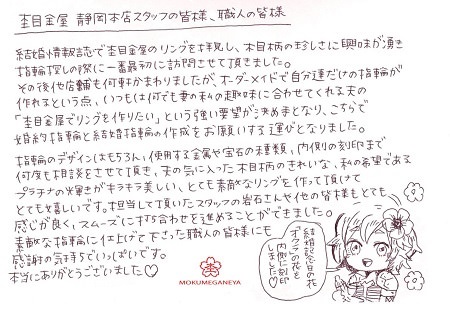 杢目金屋 静岡本店スタッフの皆様、職人の皆様
結婚情報誌で杢目金屋のリングを拝見し、木目柄の珍しさに興味が湧き
指輪探しの際に一番最初に訪問させて頂きました。
その後他店舗も何軒かまわりましたが、オーダーメイドで自分達だけの指輪が
作れるという点、いつもは何でも妻の私の趣味に合わせてくれる夫の
「杢目金屋でリングを作りたい」という強い要望が決め手となり、こちらで
婚約指輪と結婚指輪の作成をお願いする運びとなりました。
指輪のデザインはもちろん、使用する金属や宝石の種類、内側の刻印まで
何度も相談をさせて頂き、夫の気に入った木目柄のきれいな、私の希望である
プラチナの輝きがキラキラ美しい、とても素敵なリングを作って頂けて
とても嬉しいです。担当して頂いたスタッフの岩石さんや他の皆様もとても
感じが良く、スムーズに打ち合わせを進めることができました。
素敵な指輪に仕上げて下さった職人の皆様にも
感謝の気持ちでいっぱいです。
本当にありがとうございました♡
結婚記念日の花
の花を
内側に刻印
しました♡
MOKUMEGANEYA